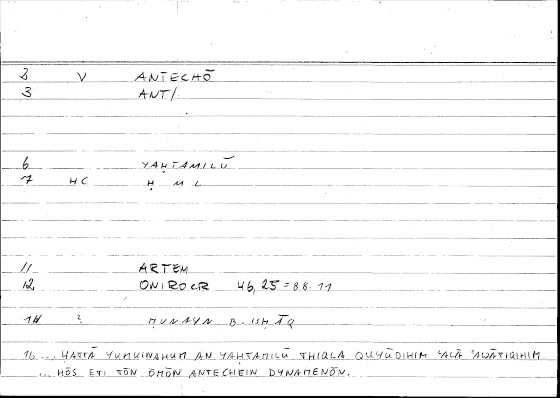 2 V ANTECHŌ
3 ANT/
6 YAḤTAMILŪ
7 HC Ḥ M L
11 ARTEM
12 ONIROCR 46,25 = 88.11
14 ? ḤUNAYN B. ISḤĀQ
16 ... ḤATTĀ YUMKINAHUM AN YAḤTAMILŪ THIQLA QUYŪDIHIM ʿALĀ ʿAWĀTIQIHIM
... HŌS ETI TŌN ŌMŌN ANTECHEIN DYNAMENŌN.